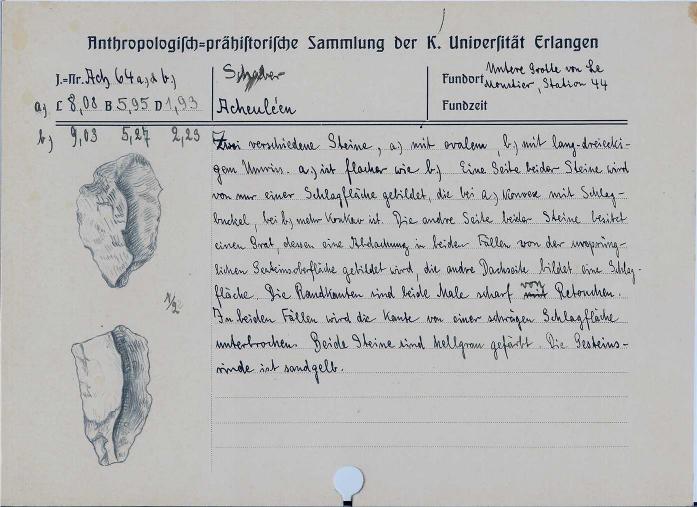 Anthropologisch=prähistorische Sammlung der K. Universität Erlangen
J.=Nr. Ach 64 a, & b,
Schaber
Fundort Untere Grotte von Le Moustier, Station 44
a, L 8,08 B 5,95 D 1,93
Acheuléen
Fundzeit
b, 9,03 5,27 2,23
Zwei verschiedene Steine, a, mit ovalem, b, mit lang-dreiecki-
gem Umriss. a, ist flacher wie b, Eine Seite beider Steine wird
von nur einer Schlagfläche gebildet, die bei a, konvex mit Schlag-
buckel, bei b, mehr konkav ist. Die andre Seite beider Steine besitzt
einen Grat, dessen eine Abdachung in beiden Fällen von der ursprüng-
lichen Gesteinsoberfläche gebildet wird, die andre Dachseite bildet eine Schlag-
fläche. Die Randkanten sind beide Male scharf mit von Retouchen.
In beiden Fällen wird die Kante von einer schrägen Schlagfläche
unterbrochen. Beide Steine sind hellgrau gefärbt. Die Gesteins-
rinde ist sandgelb.
1/2